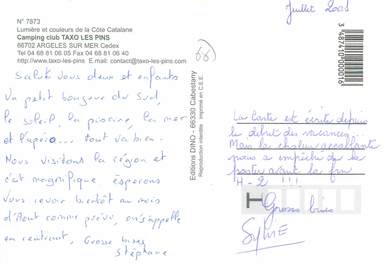 N° 7873
Lumière et couleurs de la Côte Catalane
Camping club TAXO LES PINS
66702 ARGELES SUR MER Cedex
Tel 04 68 81 06 05 Fax 04 68 81 06 40
http://www.taxo-les-pins.com E.mail: contact@taxo-les-pins.com
Salut Vous deux et enfants
Un petit bonjour du Sud,
le soleil, la piscine, la mer
et l'apéro... tout va bien.
Nous visitons la région et
c'est magnifique espérons
Vous revoir bientôt au mois
d'Août comme prévu, on s'appelle
en rentrant, Grosse bises
Stéphane
66
Editions DINO - 66330 Cabestany
Reproduction interdite imprimé en C.E.E.
Juillet
3 487410 000016
La Carte est écrite depuis
le début des vacances
Mais la chaleur accablante
nous a empêché de la
poster avant la fin
H-2 !!!
Grosses bises
Sylvie